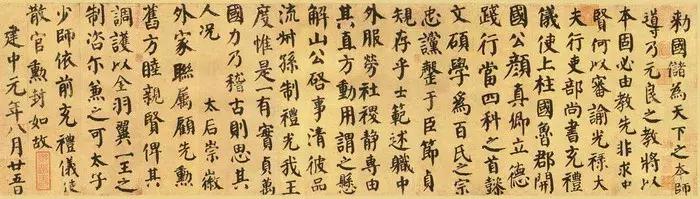 勑國儲為天下之本師
導乃元良之教將以
本固必由教先非求中
賢何以審諭光祿大
夫行吏部尚書充禮
儀使上柱國魯郡開
國公顏真卿立德
踐行當四科之首懿
文碩學為百氏之宗
忠讜罄于臣節貞
規存乎士範述職中
外服勞社稷靜專由
其直方動用謂之懸
解山公啓事清彼品
流叔孫制禮光我王
度惟是一有實貞萬
國力乃稽古則思其
人况 太后崇徽
外家聯屬顧先勳
舊方睦親賢俾其
調護以全羽翼一王之
制咨尔兼之可太子
少師依前充禮儀使
散官勳封如故
建中元年八月廿五日